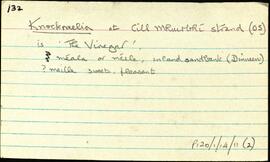 132
Knockmelia at Cill MRUIGHRÉ strand (OS)
is 'The Vinegar'.
? méala or méile, inland sandbank (Dinneen)
? maille sweet, pleasant
P120/1/14/11 (2)